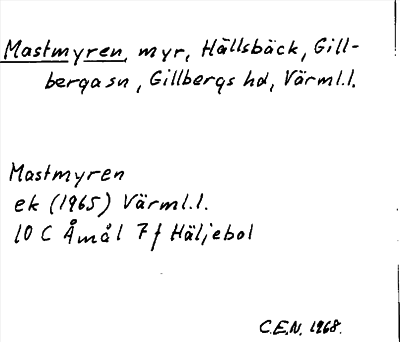 Mastmyren, myr, Hällsbäck, Gill-
berga sn, Gillbergs hd, Värml.l.
Mastmyren
ek (1965) Värml.l.
10 C Åmål 7f Häljebol
C.E.N. 1968.